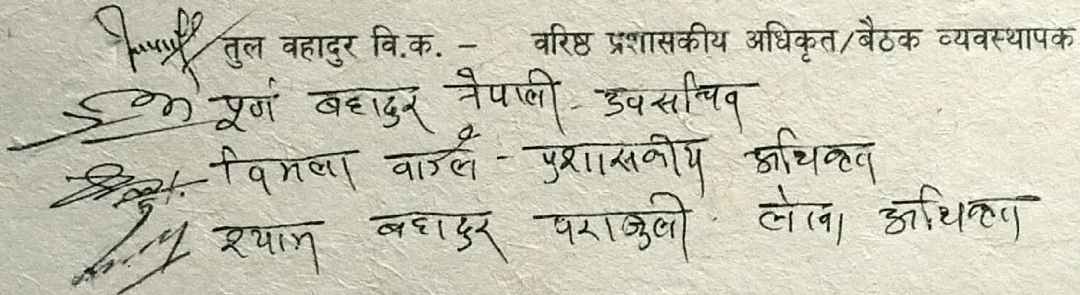 तुल वहादुर वि.क. - वरिष्ठ प्रशासकीय अधिकृत/बैठक व्यवस्थापक
पूर्ण बहादुर नेपाली - उपसचिव
विमला वाग्ले - प्रशासकीय अधिकृत
श्याम बहादुर पराजुली - लेखा अधिकृत